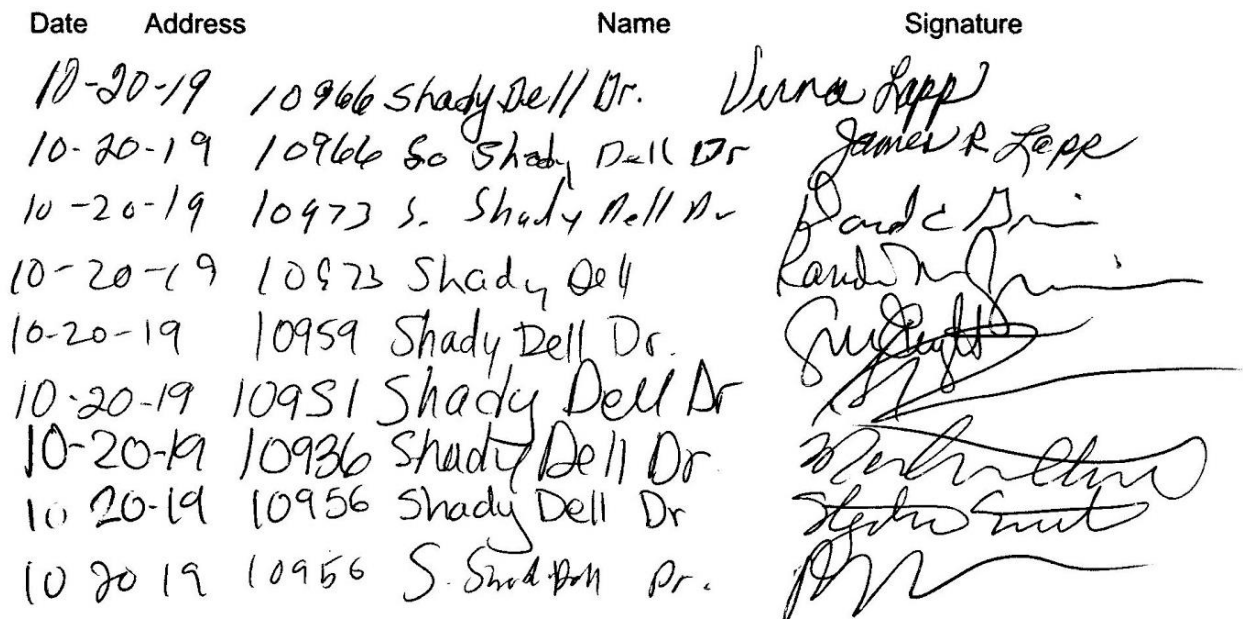 Date Address Name Signature
10-20-19 10966 Shady Dell Dr. Verna Lapp
10-20-19 10966 So Shady Dell Dr James R Lapp
10-20-19 10973 S. Shady Dell Dr
10-20-19 10973 Shady Dell
10-20-19 10959 Shady Dell Dr.
10-20-19 10951 Shady Dell Dr
10-20-19 10936 Shady Dell Dr
10 20-19 10956 Shady Dell Dr
10 20 19 10956 S. Dr.